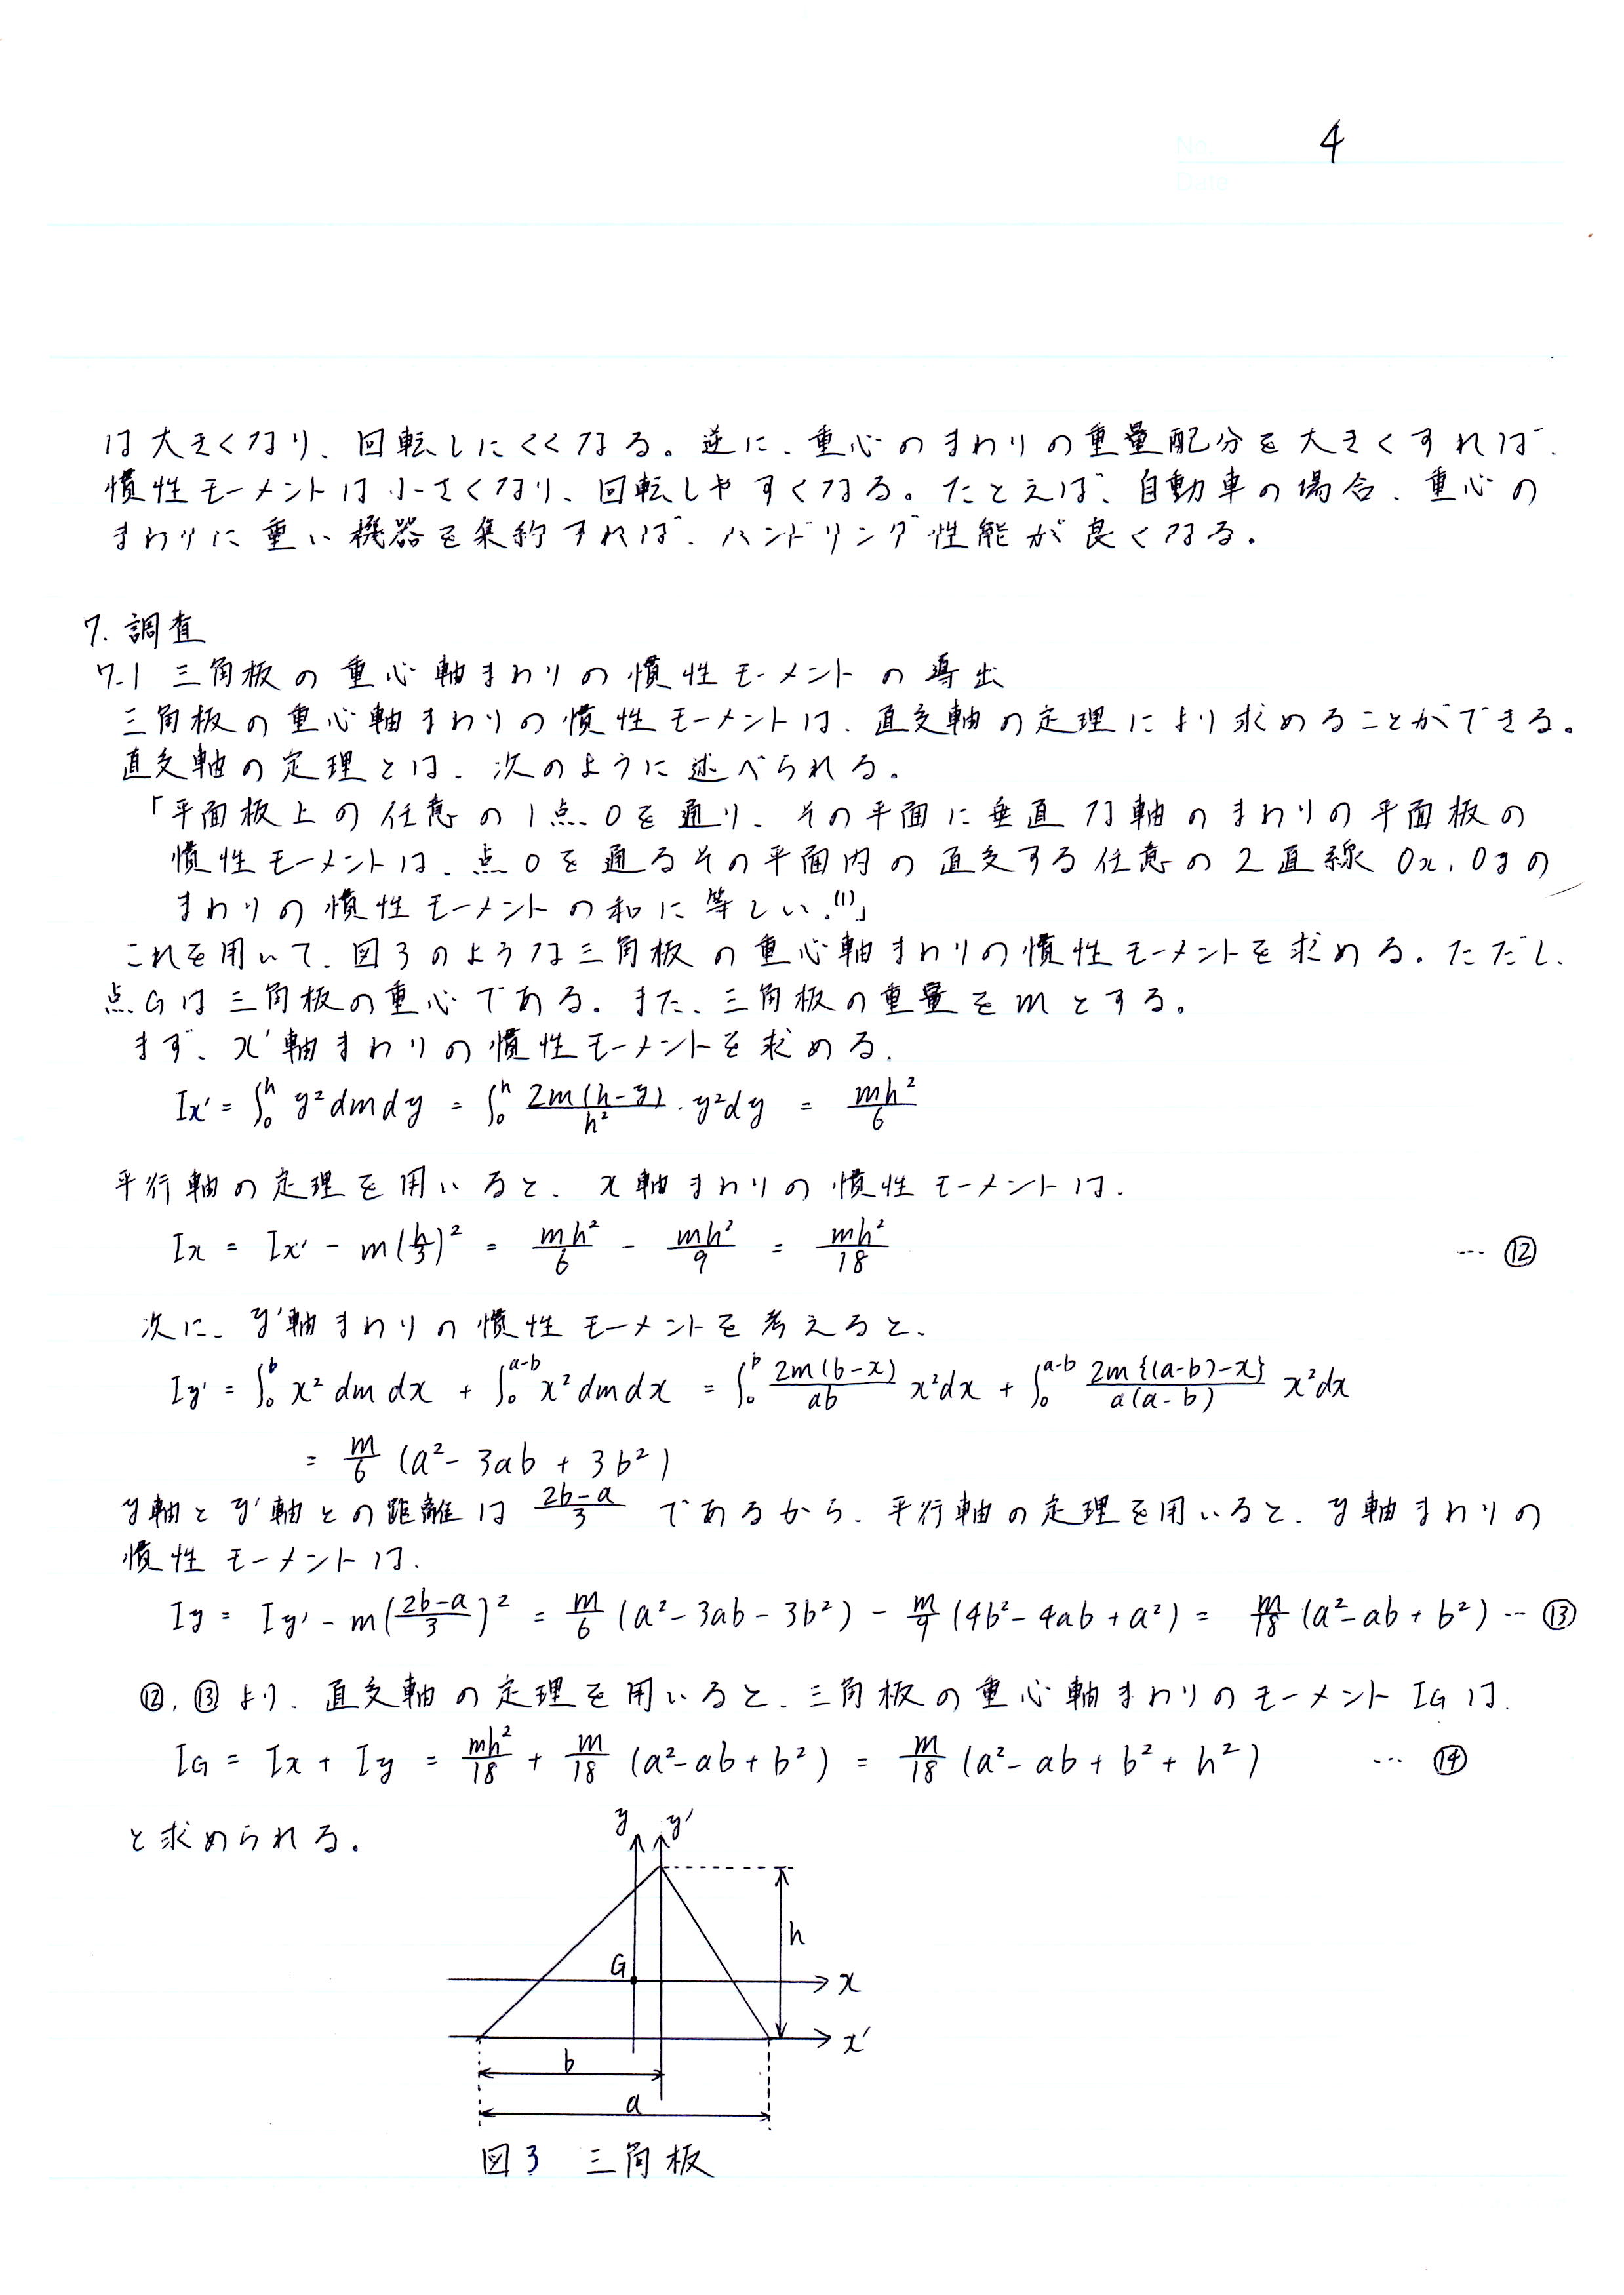 No.
4
Date
は大きくなり、回転しにくくなる。逆に、重心のまわりの重量配分を大きくすれば、
慣性モーメントは小さくなり、回転しやすくなる。たとえば、自動車の場合、重心の
まわりに重い機器を集約すれば、ハンドリング性能が良くなる。
7. 調査
7.1 三角板の重心軸まわりの慣性モーメントの導出
三角板の重心軸まわりの慣性モーメントは、直交軸の定理により求めることができる。
直交軸の定理とは、次のように述べられる。
「平面板上の任意の1点Oを通り、その平面に垂直な軸のまわりの平面板の
慣性モーメントは、点Oを通るその平面内の直交する任意の2直線Ox,Oyの
まわりの慣性モーメントの和に等しい。⁽¹⁾」
これを用いて、図3のような三角板の重心軸まわりの慣性モーメントを求める。ただし、
点Gは三角板の重心である。また、三角板の重量をmとする。
まず、x'軸まわりの慣性モーメントを求める。
Ix' = ∫₀ʰ y² dm dy = ∫₀ʰ 2m(h-y)/h² · y² dy = mh²/6
平行軸の定理を用いると、x軸まわりの慣性モーメントは、
Ix = Ix' - m(h/3)² = mh²/6 - mh²/9 = mh²/18 … ⑫
次に、y'軸まわりの慣性モーメントを考えると、
Iy' = ∫₀ᵇ x² dm dx + ∫₀ᵃ⁻ᵇ x² dm dx = ∫₀ᵇ 2m(b-x)/ab x² dx + ∫₀ᵃ⁻ᵇ 2m{(a-b)-x}/a(a-b) x² dx
= m/6 (a² - 3ab + 3b²)
y軸とy'軸との距離は (2b-a)/3 であるから、平行軸の定理を用いると、y軸まわりの
慣性モーメントは、
Iy = Iy' - m((2b-a)/3)² = m/6 (a² - 3ab - 3b²) - m/9 (4b² - 4ab + a²) = m/18 (a² - ab + b²) … ⑬
⑫,⑬より、直交軸の定理を用いると、三角板の重心軸まわりのモーメントIGは、
IG = Ix + Iy = mh²/18 + m/18 (a² - ab + b²) = m/18 (a² - ab + b² + h²) … ⑭
と求められる。
y y'
h
G
x
x'
b
a
図3 三角板